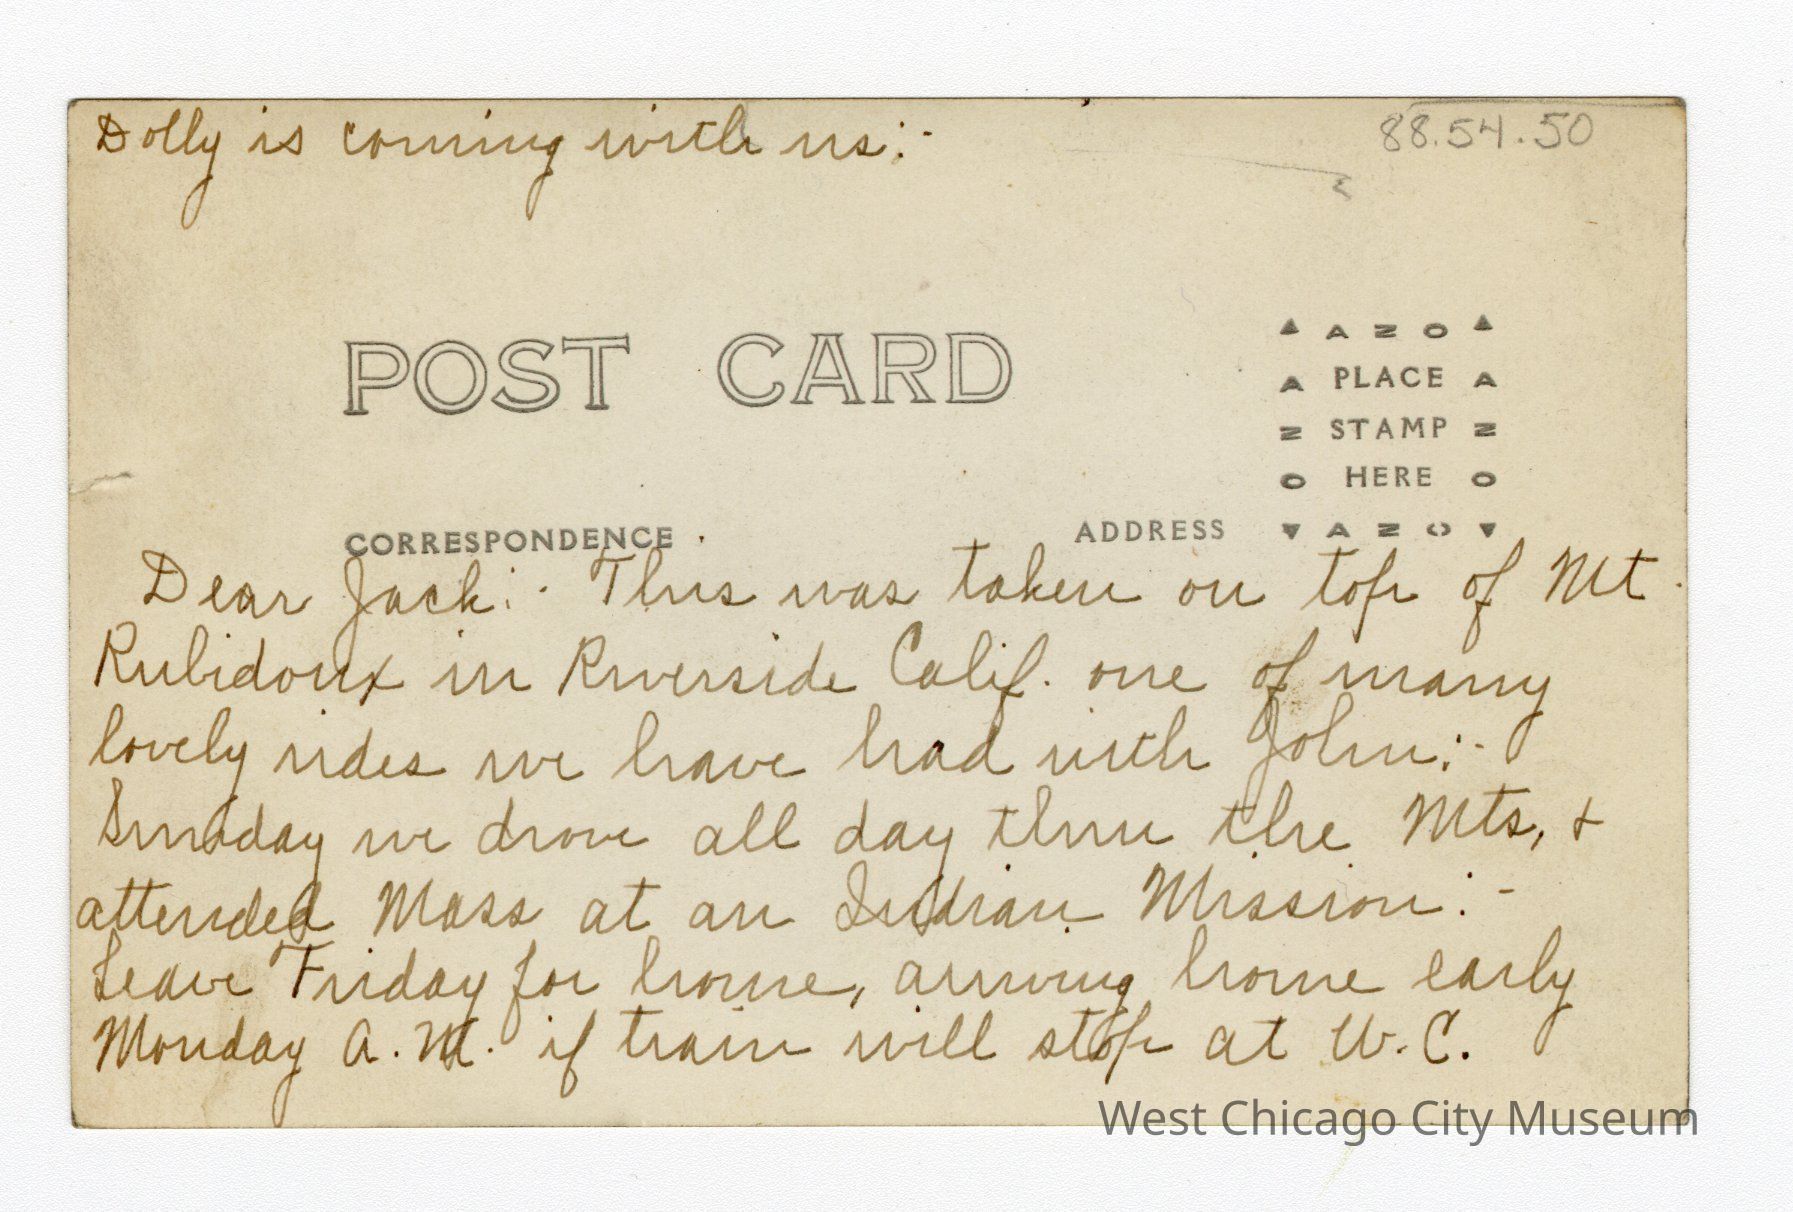 Dolly is coming with us:-
88.54.50
POST CARD
▲ A Z O ▲
A PLACE A
Z STAMP Z
O HERE O
▼ A Z O ▼
CORRESPONDENCE
ADDRESS
Dear Jack:- This was taken on top of Mt.
Rubidoux in Riverside Calif. one of many
lovely rides we have had with John:-
Sunday we drove all day thru the Mts, &
attended Mass at an Indian Mission:-
Leave Friday for home, arriving home early
Monday A.M. if train will stop at W.C.
West Chicago City Museum